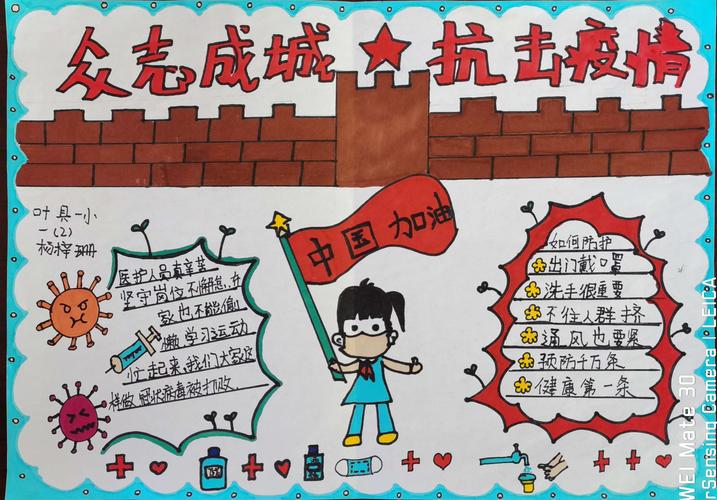 众志成城★抗击疫情
叶县一小
一(2)
杨梓玥
中国加油
医护人员真辛苦
坚守岗位不懈怠,在
家也不能偷
懒学习运动
忙起来,我们大家这
样做冠状病毒被打败
如何防护
出门戴口罩
洗手很重要
不往人群挤
通风也要紧
预防千万条
健康第一条
WEI Mate 30
Sensing Camera | LEICA